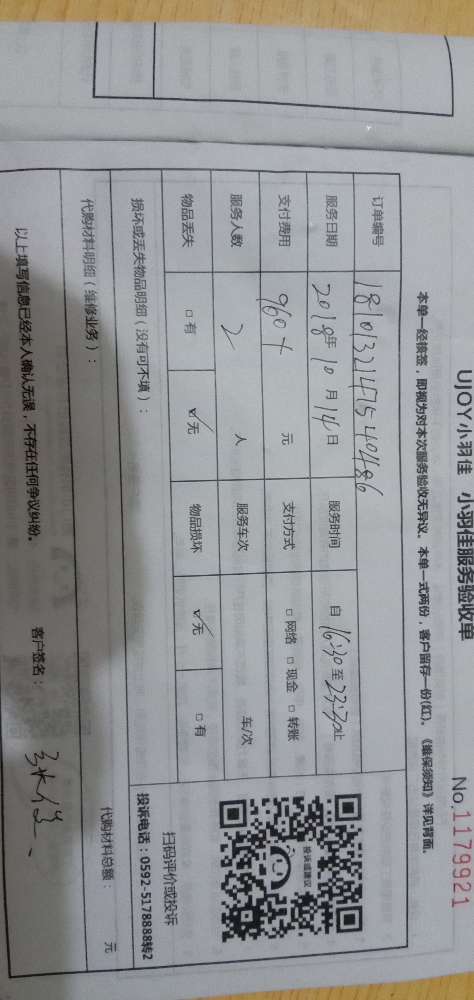 UJOY小羽佳 小羽佳服务验收单
No.1179921
本单一经核签，即视为对本次服务验收无异议。本单一式两份，客户留存一份(红)。《维保须知》详见背面。
订单编号 1810132147540486
服务日期 2018年10月14日 服务时间 自16:30至23:30止
支付费用 960+ 元 支付方式 □网络 □现金 □转账
服务人数 2 人 服务车次 车/次
物品丢失 □有 ☑无 物品损坏 ☑无 □有
投诉或建议
扫码评价或投诉
投诉电话：0592-5178888转2
损坏或丢失物品明细（没有可不填）：
代购材料明细（维修业务）： 代购材料总额： 元
以上填写信息已经本人确认无误，不存在任何争议纠纷。 客户签名：